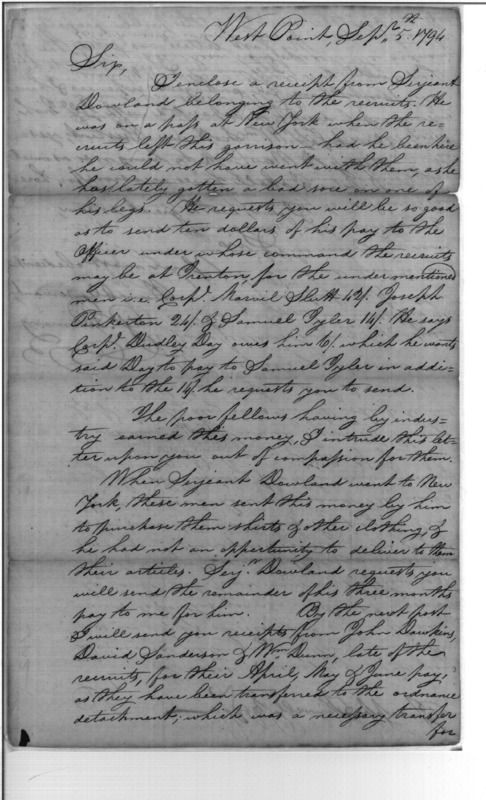 West Point, Sepr. 5th 1794
Sir,
I enclose a receipt from Serjeant
Dowland belonging to the recruits. He
was on a pass at New York when the re=
cruits left this garrison – had he been here
he could not have went with them, as he
has lately gotten a bad sore on one of
his legs. He requests you will be so good
as to send ten dollars of his pay to the
Officer under whose command the recruits
may be at Trenton, for the undermentioned
men i.e. Corpl. Marvil Slutt 42/. Joseph
Pinkerton 24/. & Samuel Tyler 14/. He says
Corpl. Dudley Day owes him 6/. which he wants
said Day to pay to Samuel Tyler in addi=
tion to the 14/. he requests you to send.
The poor fellows having by indus=
try earned this money, I intrude this let=
ter upon you out of compassion for them.
When Serjeant Dowland went to New
York, these men sent this money by him
to purchase them shirts & other clothing, &
he had not an opportunity to deliver to them
their articles. Serjt. Dowland requests you
will send the remainder of his three months
pay to me for him. By the next post
I will send you receipts from John Dawkins,
David Sanderson & Wm. Dunn, late of the
recruits, for their April, May & June pay,
as they have been transferred to the ordnance
detachment; which was a necessary transfer
for